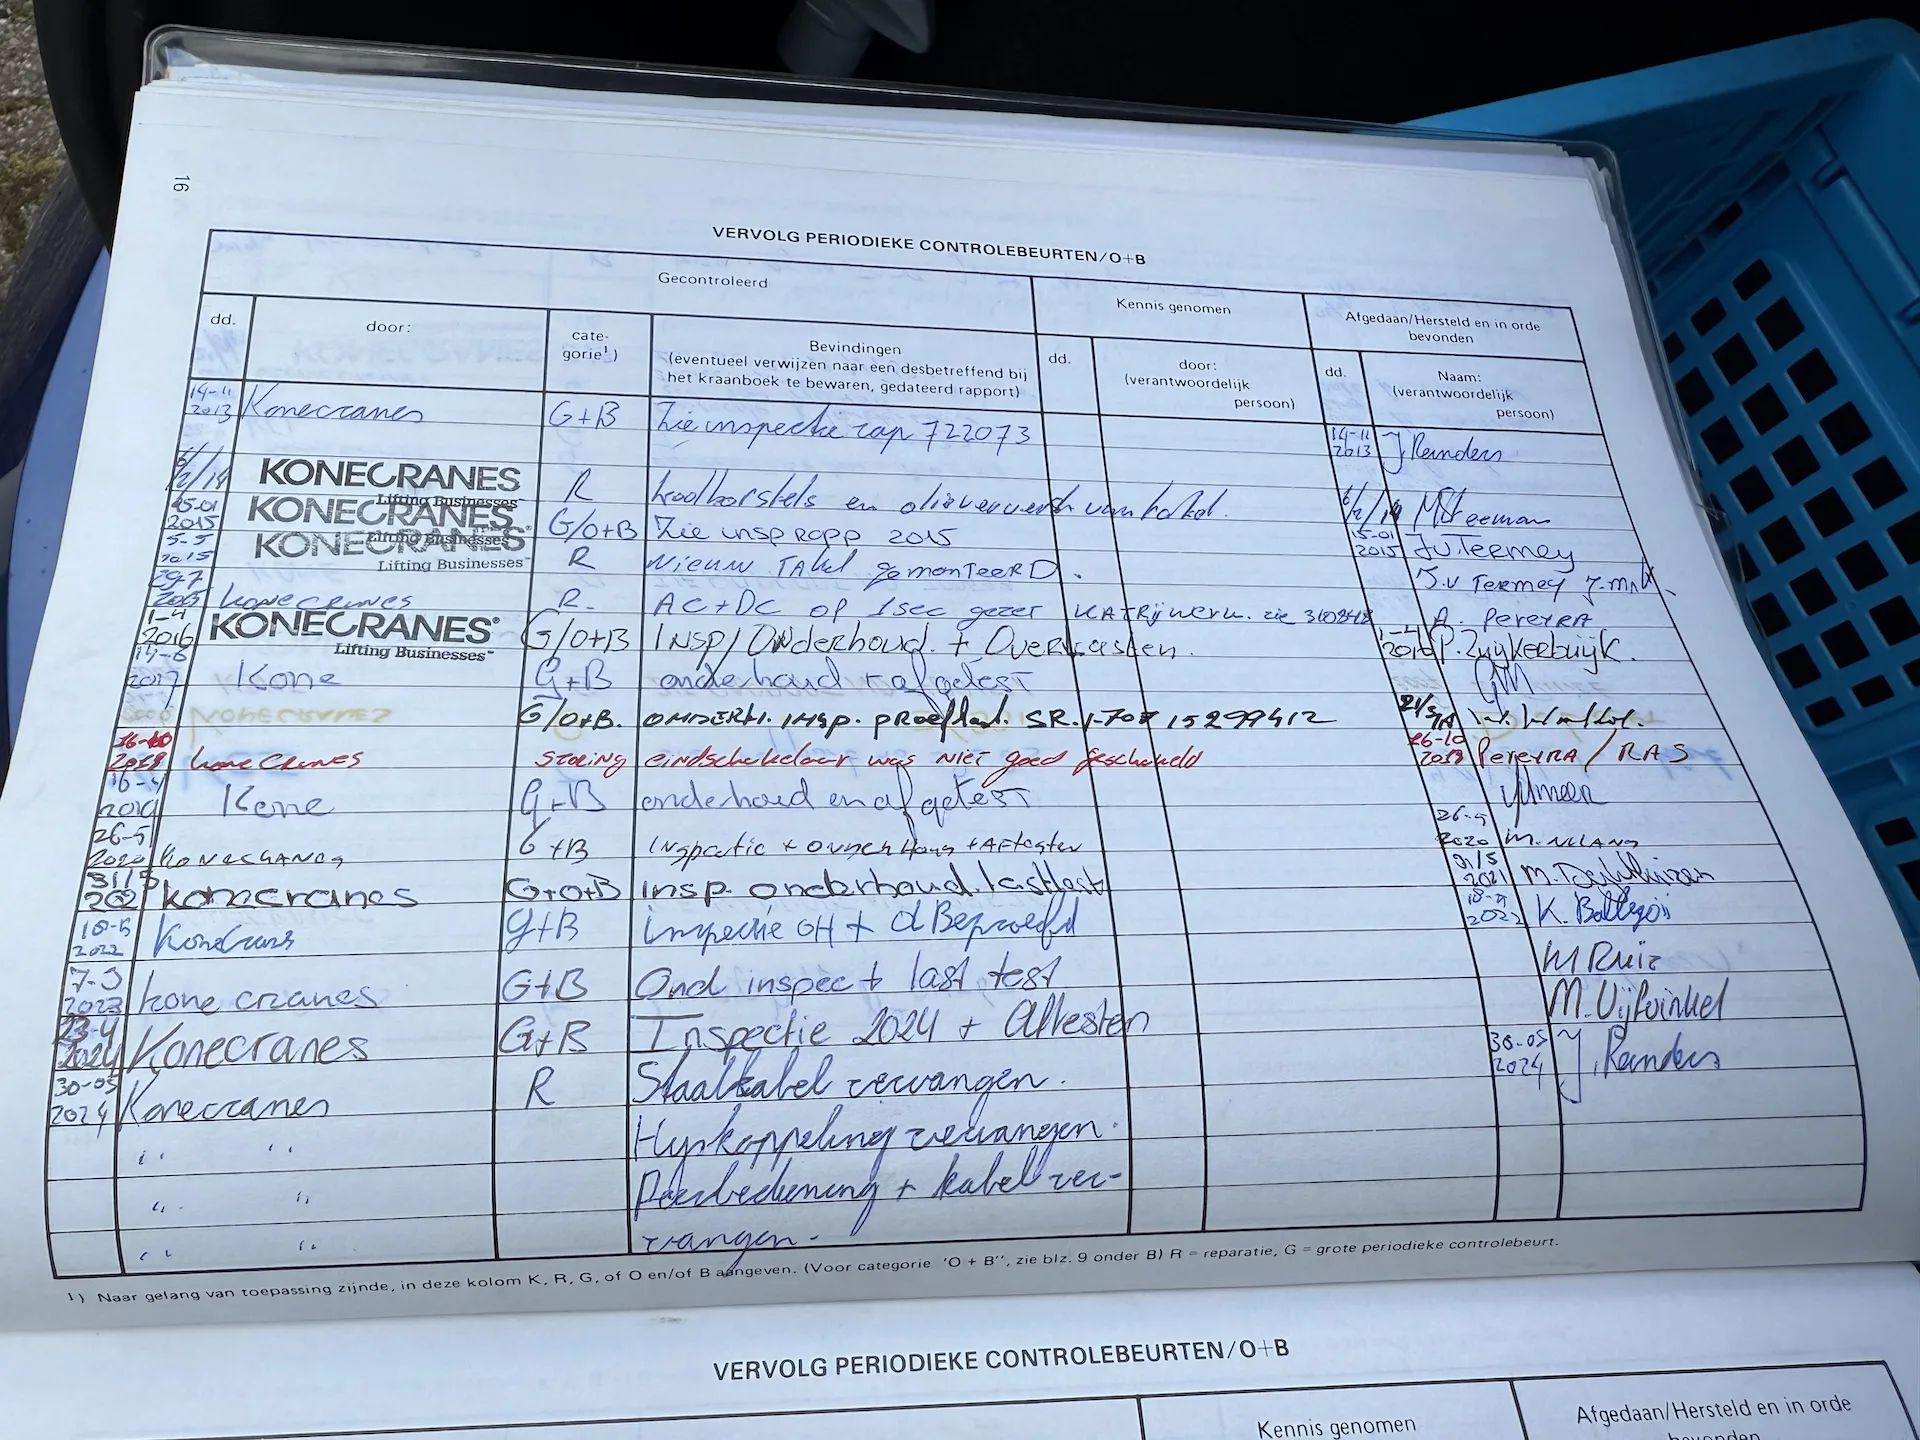 16
VERVOLG PERIODIEKE CONTROLEBEURTEN/O+B
Gecontroleerd
Kennis genomen
Afgedaan/Hersteld en in orde
bevonden
dd.
door:
cate-
gorie¹)
Bevindingen
(eventueel verwijzen naar een desbetreffend bij
het kraanboek te bewaren, gedateerd rapport)
dd.
door:
(verantwoordelijk
persoon)
dd.
Naam:
(verantwoordelijk
persoon)
14-11 2013 Konecranes G+B Zie inspectie rap 722073 14-11 2013 J Reinders
KONECRANES R koolborstels en olieververst van takel.
Lifting Businesses
15-01 2015 KONECRANES G/O+B Zie insp RAPP 2015 15-01 2015 J.v Termey
Lifting Businesses
5-5 2015 KONECRANES R Nieuw TAkel gemonteerD. J.v Termey
Lifting Businesses
29-7 2015 konecranes R- AC+DC op 1sec gezet A. PereyRA
1-4 2016 KONECRANES G/O+B INSP/Onderhoud. + 1-4 2016 P. Zuykerbuijk.
Lifting Businesses
14-6 2017 Kone G+B onderhoud + afgetest
KONECRANES G/O+B. ONDERH. INSP. PROEFlast. SR. 15299412
16-10 2018 konecranes STORING eindschakelaar was niet goed geschakeld 26-10 2018 PereyRA / RAS
2019 Kone G+B onderhoud en afgetest
26-5 2020 KONECRANES G+B Inspectie + onderhoud + Aftesten 2020
31/5 2021 konecranes G+O+B insp. onderhoud. lasttest 31/5 2021
2022 Konecranes G+B inspectie OH + Beproefd 2022 K. Ballegoij
7-3 2023 kone cranes G+B Ond inspec + last test M Ruiz
23-4 2024 Konecranes G+B Inspectie 2024 + Aftesten M. Vijfvinkel
30-05 2024 Konecranes R Staalkabel vervangen. 30-05 2024 J. Reinders
" " Hijskoppeling vervangen.
" " Peerbediening + kabel ver-
" " vangen.
1) Naar gelang van toepassing zijnde, in deze kolom K, R, G, of O en/of B aangeven. (Voor categorie 'O + B'', zie blz. 9 onder B) R = reparatie, G = grote periodieke controlebeurt.
VERVOLG PERIODIEKE CONTROLEBEURTEN/O+B
Kennis genomen
Afgedaan/Hersteld en in orde
bevonden